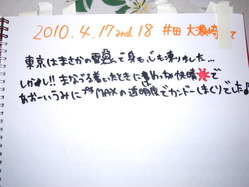 2010.4.17and18 井田 大瀬崎 にて
東京はまさかの雪で身も心も凍りました…
しかし!! まなづる着いたときには 快晴で
あおーいうみに プチMAXの透明度でカンドーしまくりでした